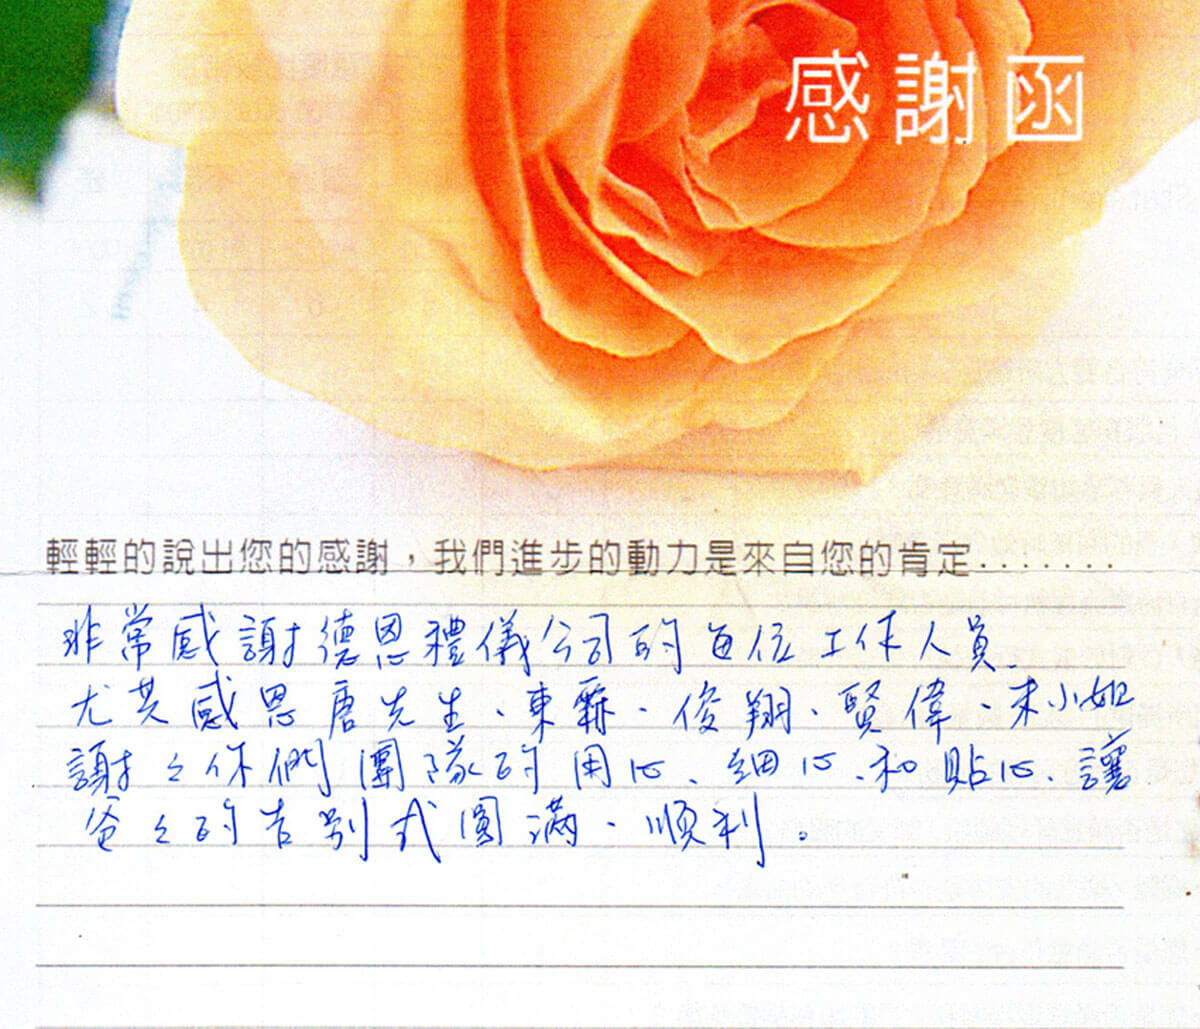 感謝函
輕輕的說出您的感謝,我們進步的動力是來自您的肯定.......
非常感謝德恩禮儀公司的每位工作人員、
尤其感恩唐先生、東霖、俊翔、賢偉、朱小姐
謝々你們團隊的用心、細心、和貼心、讓
爸々的告別式圓滿、順利。